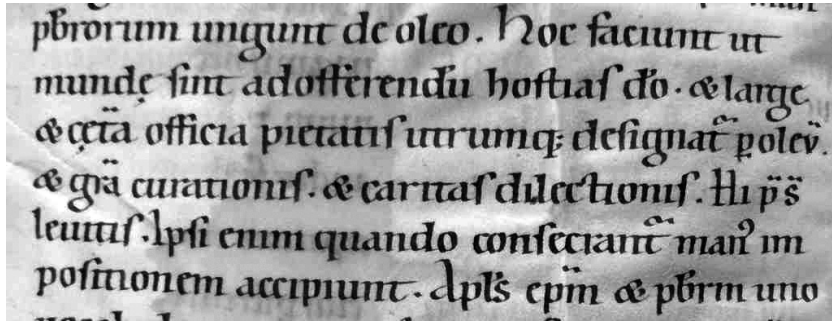 pb̅rorum ungunt de oleo. Hoc faciunt ut
mundę sint adofferend̅u hostias d̅o. & largę
& cęt̅a officia pietatis utrumq; designat᷑ p̲ oleu̅.
& gr̅a curationis. & caritas dilectionis. Hi p̅s̅
leuitis. Ipsi enim quando consecrant᷑ man᷒ im
positionem accipiunt. Apl̅s ep̅m & pb̅rm uno